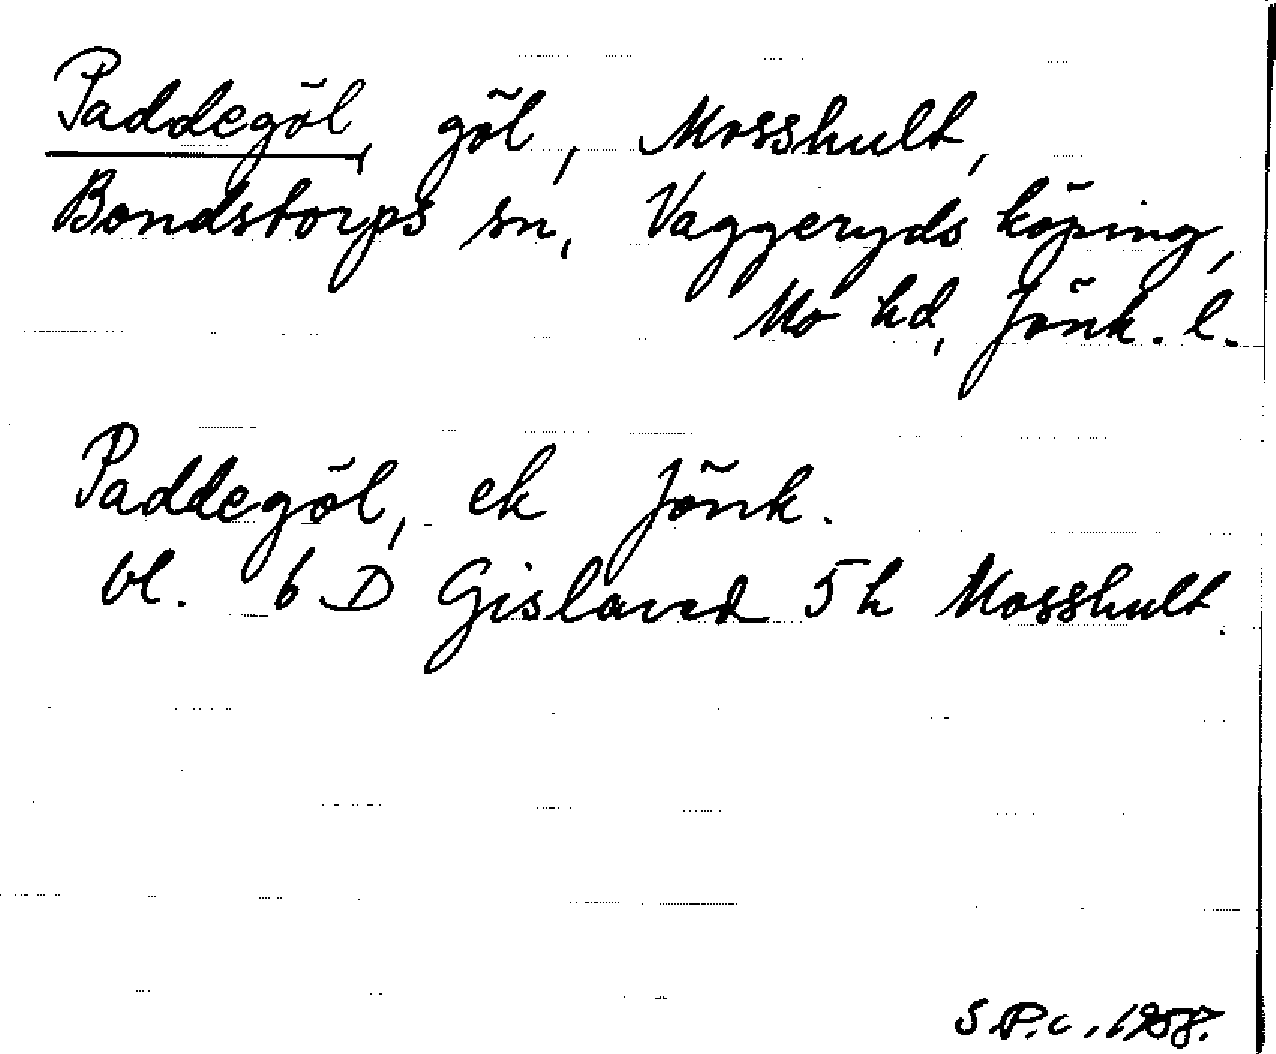 Paddegöl, göl, Mosshult,
Bondstorps sn, Vaggeryds köping,
Mo hd, Jönk. l.
Paddegöl, ek Jönk.
bl. 6 D Gislaved 5 h Mosshult.
S.P.c. 1958.